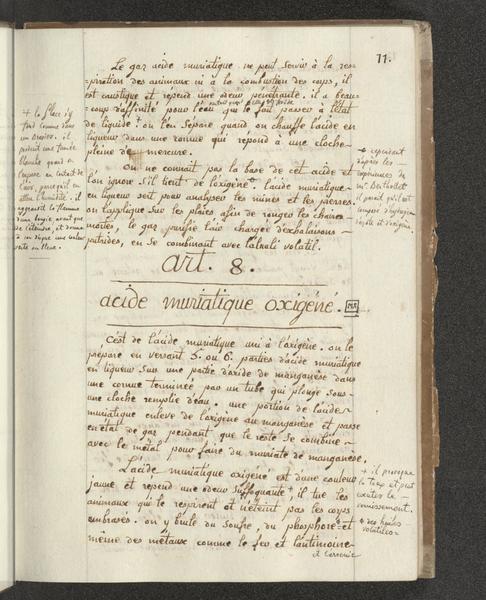 77.
Le gaz acide muriatique ne peut servir à la res-
-piration des animaux ni à la combustion des corps, il
est caustique et répend une odeur pénétrante. il a beau-
-coup d'affinité pour l'eau qui le fait passer à l'état
de liquide: on l'en sépare quand on chauffe l'acide en
liqueur dans une cornue qui répond à une cloche
pleine de mercure.
On ne connait pas la base de cet acide et
l'on ignore s'il tient de l'oxigène. l'acide muriatique
en liqueur sert pour analyser les mines et les pierres.
on l'applique sur les plaies afin de ronger les chaires
mortes, le gaz purifie l'air chargé d'exhalaisons
putrides, en se combinant avec l'alcali volatil.
+ la glace s'y
fond comme dans
un brasier. il
produit une fumée
blanche quand on
l'expose au contact de
l'air, parcequ'il en
attire l'humidité. il
aggrandit la flamme
d'une bougie avant que
de l'éteindre, et donne
à son disque une couleur
verte ou bleue.
art. 8.
acide muriatique oxigéné.
C'est de l'acide muriatique uni à l'oxigène. on le
prépare en versant 5. ou 6. parties d'acide muriatique
en liqueur sur une partie d'oxide de manganèse dans
une cornue terminée par un tube qui plonge sous
une cloche remplie d'eau. une portion de l'acide
muriatique enlève de l'oxigène au manganèse et passe
en état de gaz pendant que le reste se combine
avec le métal pour faire du muriate de manganèse.
L'acide muriatique oxigéné est d'une couleur
jaune et répend une odeur suffoquante, il tue les
animaux qui le respirent et n'éteint pas les corps
embrasés. on y brule du soufre, du phosphore et
même des métaux comme le fer et l'antimoine
et l'arsenic